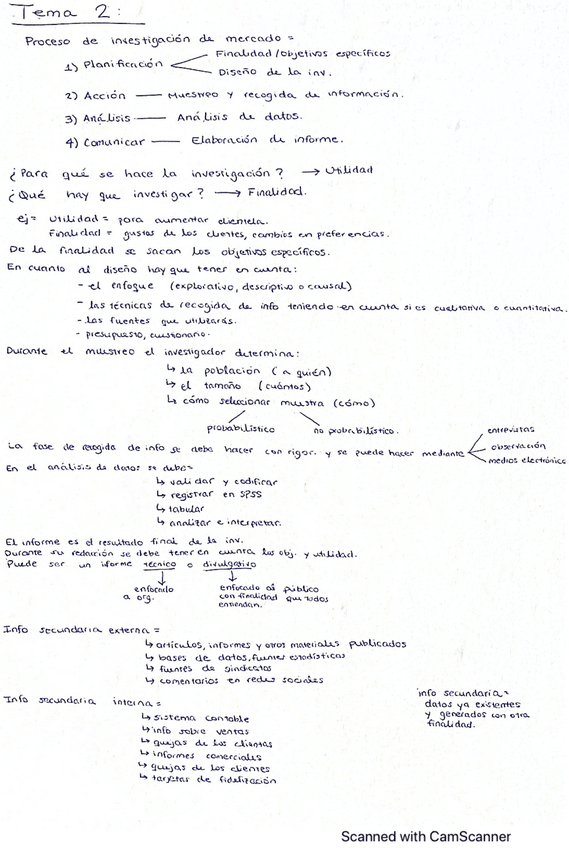 Tema 2:
Proceso de investigación de mercado =
1) Planificación
Finalidad/objetivos específicos
Diseño de la inv.
2) Acción — Muestreo y recogida de información.
3) Análisis — Análisis de datos.
4) Comunicar — Elaboración de informe.
¿Para qué se hace la investigación? → Utilidad
¿Qué hay que investigar? → Finalidad.
ej= Utilidad = para aumentar clientela.
Finalidad = gustos de los clientes, cambios en preferencias.
De la finalidad se sacan los objetivos específicos.
En cuanto al diseño hay que tener en cuenta:
- el enfoque (explorativo, descriptivo o causal)
- las técnicas de recogida de info teniendo en cuenta si es cualitativa o cuantitativa.
- las fuentes que utilizarás.
- presupuesto, cuestionario.
Durante el muestreo el investigador determina:
↳ la población (a quién)
↳ el tamaño (cuántos)
↳ cómo seleccionar muestra (cómo)
probabilístico
no probabilístico.
La fase de recogida de info se debe hacer con rigor. y se puede hacer mediante
entrevistas
observación
medios electrónicos
En el análisis de datos se debe=
↳ validar y codificar
↳ registrar en SPSS
↳ tabular
↳ analizar e interpretar.
El informe es el resultado final de la inv.
Durante su redacción se debe tener en cuenta los obj. y utilidad.
Puede ser un iforme técnico o divulgativo
enfocado
a org.
enfocado al público
con finalidad que todos
entiendan.
Info secundaria externa =
↳ artículos, informes y otros materiales publicados
↳ bases de datos, fuentes estadísticas
↳ fuentes de sindicatos
↳ comentarios en redes sociales
Info secundaria interna =
↳ sistema contable
↳ info sobre ventas
↳ quejas de los clientas
↳ informes comerciales
↳ quejas de los clientes
↳ tarjetas de fidelización
info secundaria=
datos ya existentes
y generados con otra
finalidad.
Scanned with CamScanner